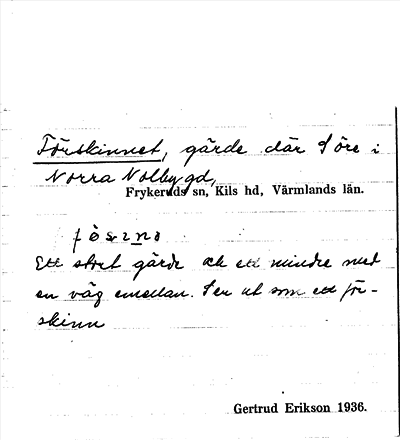 Förskinnet, gärde där Söre i
Norra Nolbygd,
Frykeruds sn, Kils hd, Värmlands län.
Ett stort gärde och ett mindre med
en väg emellan. Ser ut som ett för-
skinn
Gertrud Erikson 1936.